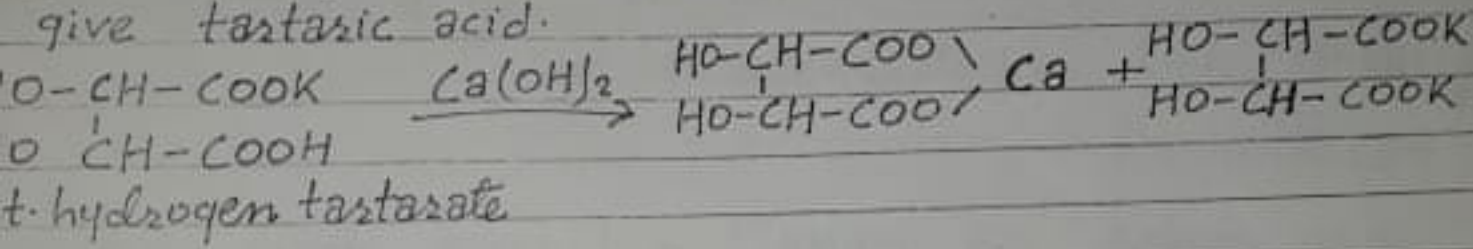 give tartaric acid.
O-CH-COOK Ca(OH)2 HO-CH-COO \ Ca + HO-CH-COOK
O CH-COOH HO-CH-COO / HO-CH-COOK
t. hydrogen tartarate